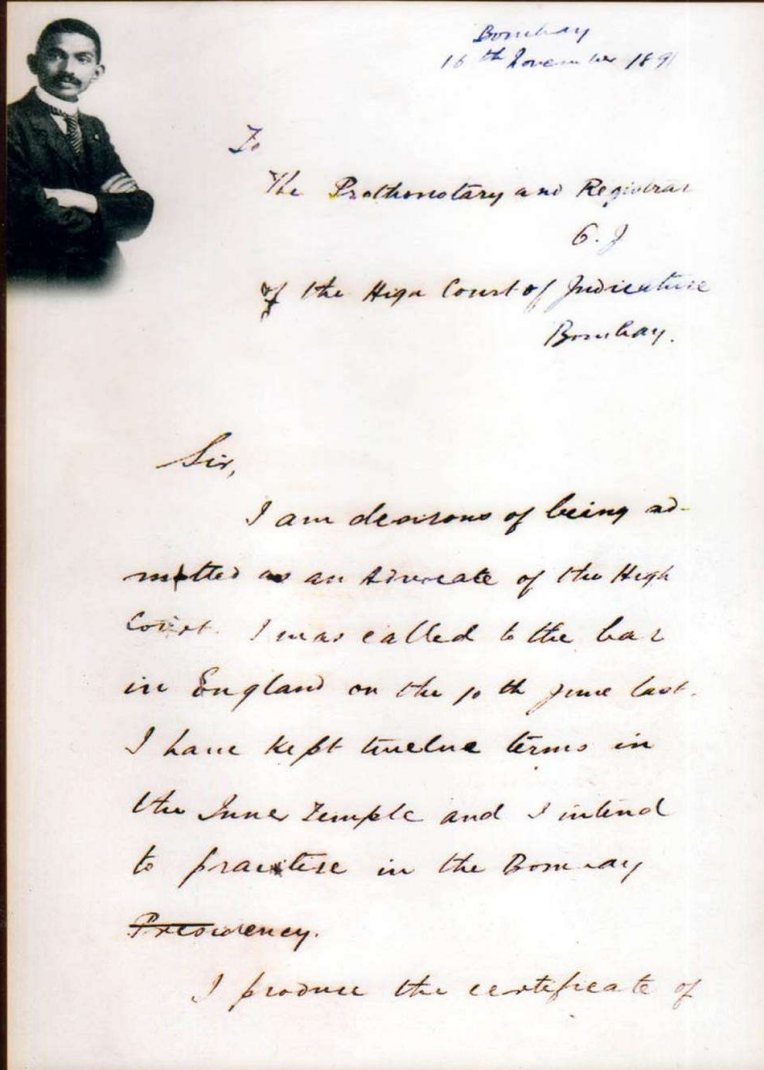 Bombay
16th November 1891
To
The Prothonotary and Registrar
of the High Court of Judicature
Bombay.
Sir,
I am desirous of being ad-
mitted as an Advocate of the High
Court. I was called to the bar
in England on the 10th June last.
I have kept twelve terms in
the Inner Temple and I intend
to practise in the Bombay
Presidency.
I produce the certificate of